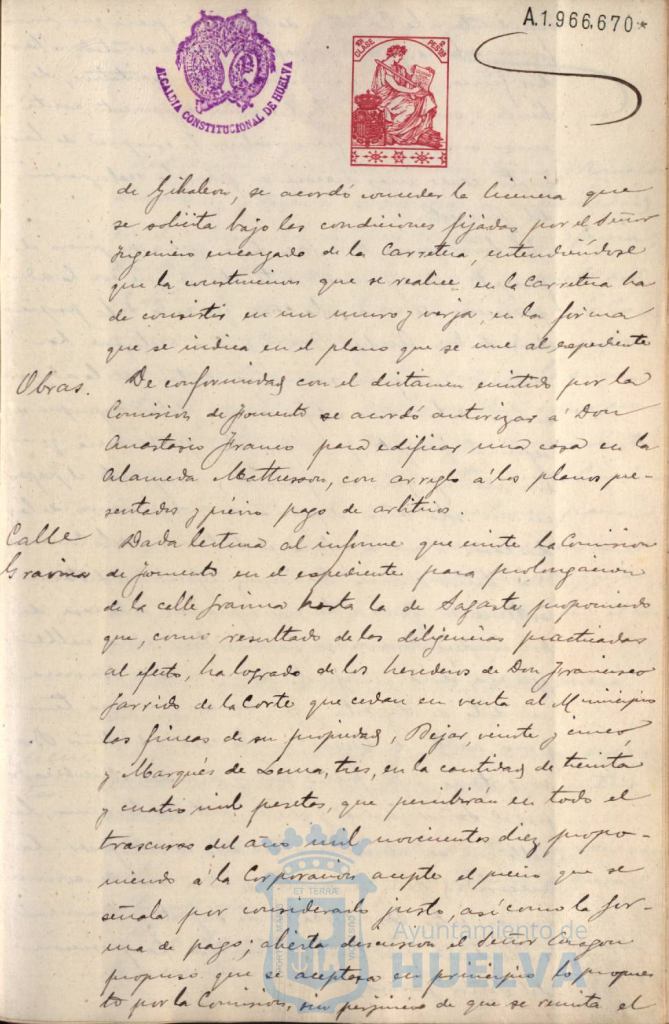 A.1.966,670*
ALCALDIA CONSTITUCIONAL DE HUELVA
CLASE PESTAS
de Gibraleon, se acordó conceder la licencia que
se solicita bajo las condiciones fijadas por el Señor
Ingeniero encargado de la Carretera, entendiéndose
que la construccion que se realice en la Carretera ha
de consistir en un muro y verja, en la forma
que se indica en el plano que se une al espediente
Obras.
De conformidad con el dictamen emitido por la
Comision de Fomento se acordó autorizar á Don
Anastasio Franco para edificar una casa en la
Alameda Mathesson, con arreglo á los planos pre-
sentados y prévio pago de arbitrios.
Calle
Gravina
Dada lectura al informe que emite la Comision
de Fomento en el espediente para prolongacion
de la calle Gravina hasta la de Sagasta proponiendo
que, como resultado de las diligencias practicadas
al efecto, ha logrado de los herederos de Don Francisco
Garrido de la Corte que cedan en venta al Municipio
las fincas de su propiedad, Bejar, veinte y cinco,
y Marqués de Lema, tres, en la cantidad de treinta
y cuatro mil pesetas, que percibirán en todo el
trascurso del año mil novecientos diez propo-
niendo á la Corporacion acepte el precio que se
señala por considerarlo justo, así como la for-
ma de pago; abierta discusion el Señor Aragon
propuso que se aceptara en principio lo propues-
to por la Comision, sin perjuicio de que se remita el
PORTUS MARIS ET TERRÆ CUSTODIA
Ayuntamiento de
HUELVA